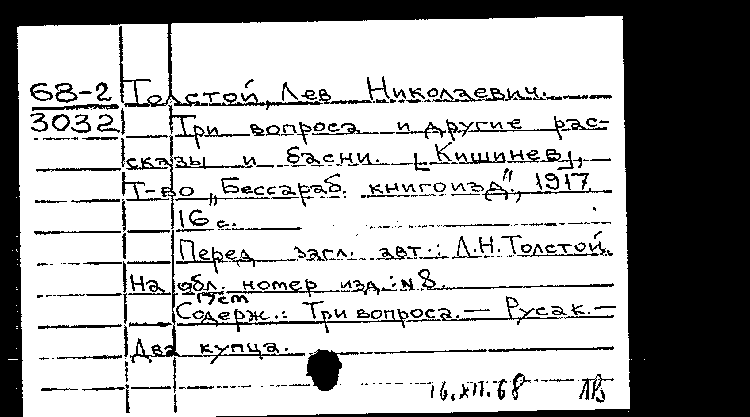 68-2 Толстой, Лев Николаевич.
3032 Три вопроса и другие рас-
сказы и басни. [Кишинев],
Т-во „Бессараб. книгоизд", 1917.
16 с.
Перед загл. авт.: Л.Н.Толстой.
На обл. номер изд.: №8.
Содерж.: Три вопроса. — Русак. —
Два купца.
16.XII.68